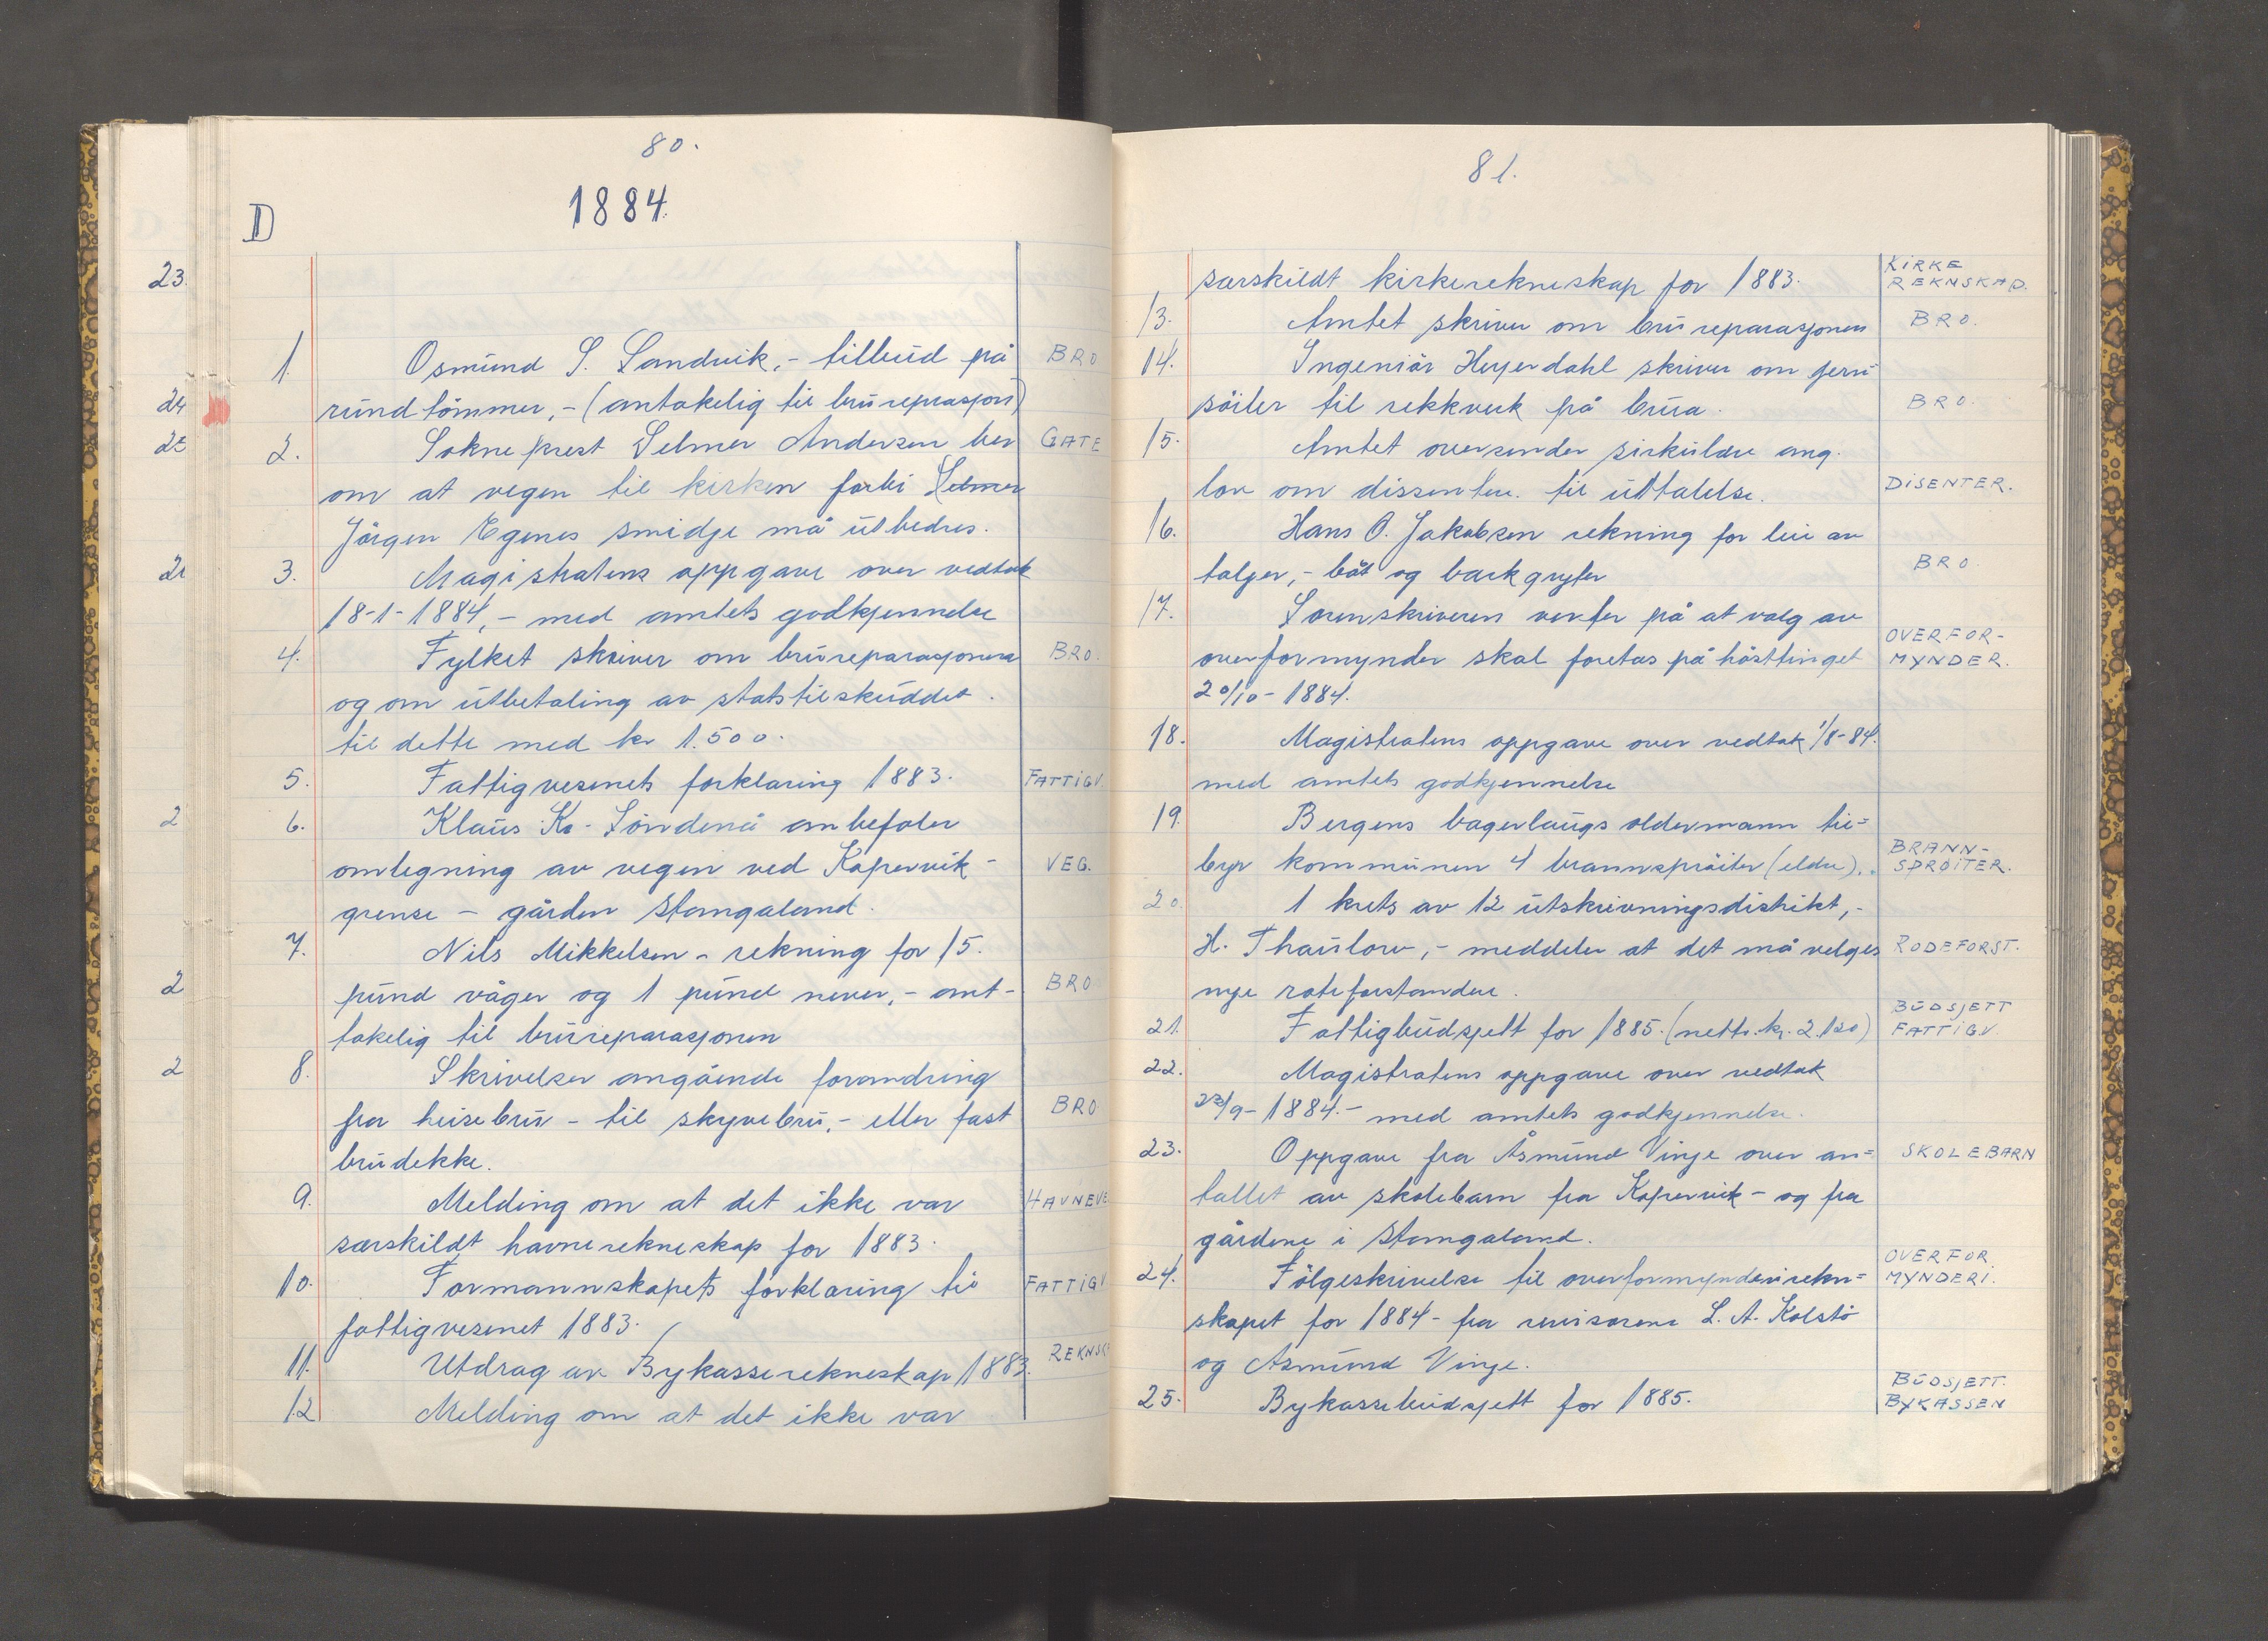 80.
D
1884.
23.
24
25
2
2
2
2
1 Osmund S. Sandvik,- tilbud på BRO
rundtömmer,- (antakelig til brureprasjon)
2. Sokneprest Selmer Andersen ber GATE
om at vegen til kirken forbi Selmer
Jörgen Egenes smidje må utbedres.
3. Magistratens oppgave over vedtak
18-1-1884,- med amtets godkjennelse
4. Fylket skriver om brureparasjonen BRO.
og om utbetaling av statstilskuddet.
til dette med kr 1.500.
5. Fattigvesenets forklaring 1883. FATTIGV
6. Klaus Kr. Söndenå anbefaler
omlegning av vegen ved Kopervik- VEG.
grense - gården Stangaland.
7. Nils Mikkelsen - rekning for 15.
pund våger og 1 pund never,- ant- BRO
takelig til brureparasjonen
8. Skrivelser angående forandring
fra heisebru - til skyvebru,- eller fast BRO
brudekke.
9. Melding om at det ikke var HAVNEVE
særskildt havnerekneskap for 1883.
10. Formannskapets forklaring til FATTIGV
fattigvesenet 1883.
11. Utdrag av Bykasserekneskap 1883. REKNSK
12 Melding om at det ikke var
81.
særskildt kirkerekneskap for 1883. KIRKE
REKNSKAP.
13. Amtet skriver om brureparasjonen BRO.
14. Ingeniör Heyerdahl skriver om jern
söiler til rekkverk på brua. BRO.
15. Amtet oversender sirkulære ang.
lov om dissentere. til uttalelse. DISENTER.
16. Hans O. Jakobsen rekning for leie av
taljer,- båt og barkgryter BRO.
17. Sorenskriveren verfer på at valg av
overformynder skal foretas på hösttinget OVERFOR-
MYNDER.
20/10-1884.
18. Magistratens oppgave over vedtak 1/8-84.
med amtets godkjennelse
19. Bergens bagerlaugs oldermann til=
byr kommunen 4 brannspröiter (eldre).. BRANN-
SPRÖITER.
20. 1 krets av 12 utskrivningsdistrikt,-
H. Thaulow,- meddeler at det må velges RODEFORST.
nye roteforstandere.
21. Fattigbudsjett for 1885. (netto. kr. 2.120) BUDSJETT
FATTIGV.
22. Magistratens oppgave over vedtak
23/9-1884.- med amtets godkjennelse.
23. Oppgave fra Åsmund Vinje over an= SKOLEBARN
tallet av skolebarn fra Kopervik - og fra
gårdene i Stangaland.
24. Fölgeskrivelse til overformynderirekn= OVERFOR
MYNDERI.
skapet for 1884 - fra revisorene L. A. Kolstö
og Asmund Vinje.
25. Bykassebudsjett for 1885. BUDSJETT.
BYKASSEN